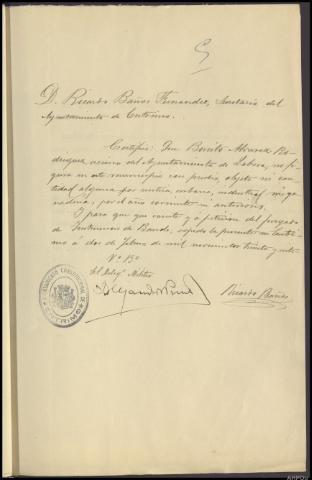 D. Ricardo Baños Fernandez, Secretario del
Ayuntamiento de Entrimo.
Certifico: Que Benito Alvarez Ro-
driguez, vecino del Ayuntamiento de Lobera, no fi-
gura en este municipio con predio, objeto ni can-
tidad alguna por rustica, urbana, industrial ni ga-
naderia, por el año corriente ni anteriores.
Y para que conste y a petición del juzgado
de Instrucción de Bande, expido la presente en Entri-
mo á dos de de mil novecientos treinta y ocho.
Vº Bº
El Delegº Militar
Ricardo Baños
AYUNTAMIENTO CONSTITUCIONAL DE
ENTRIMO
AHPOu